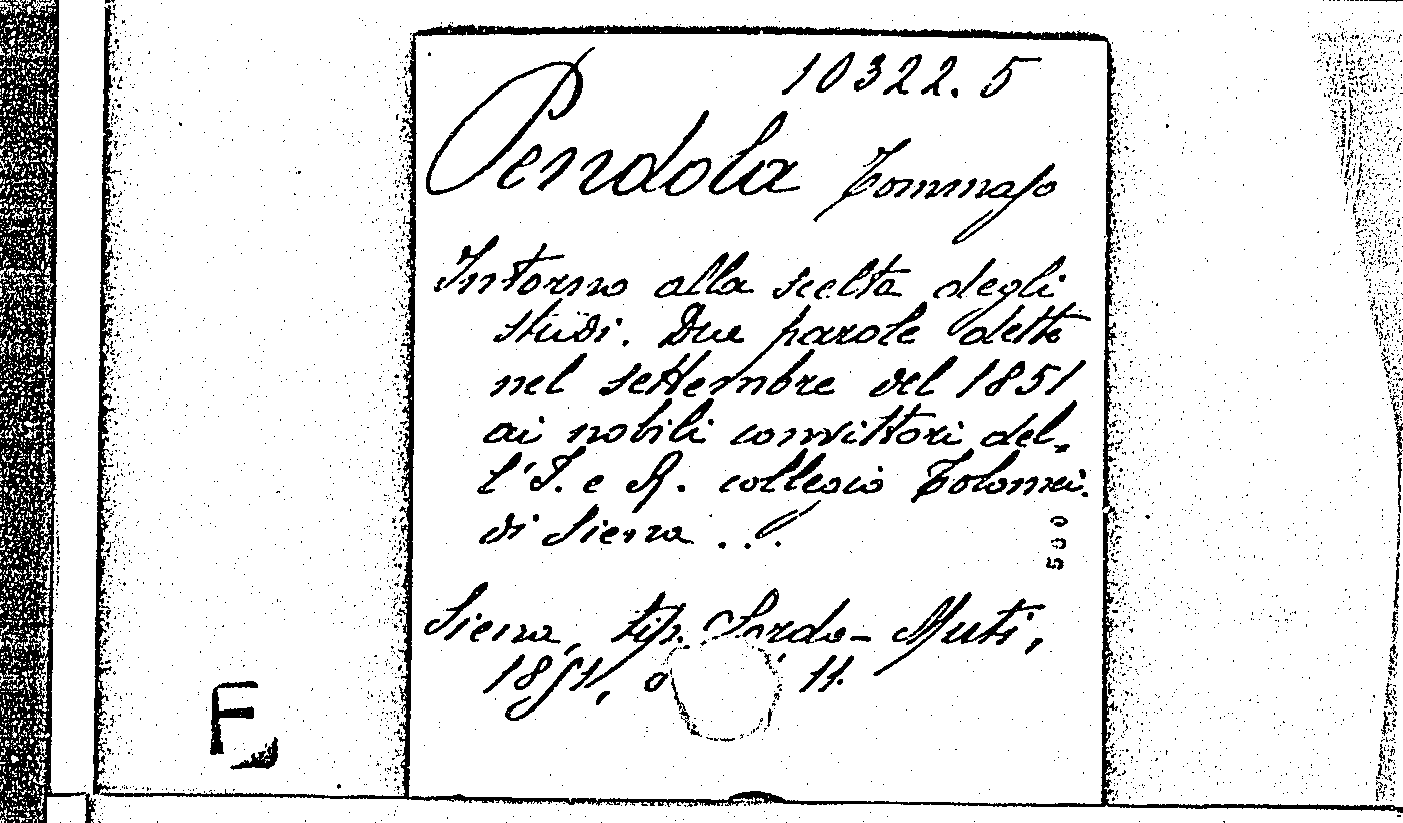 10322.5
Pendola Tommaso
Intorno alla scelta degli
studi. Due parole dette
nel settembre del 1851
ai nobili convittori del-
l'I. e R. collegio Tolomei
di Siena ...
500
Siena, tip. Sordo-Muti,
1851, 11.
F